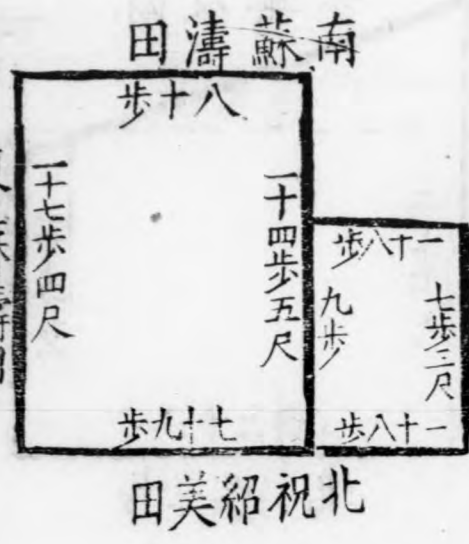 南蘇濤田
八十步
一十四步五尺
一十七步四尺
七十九步
一十八步
七步三尺
九步
一十八步
北祝紹美田